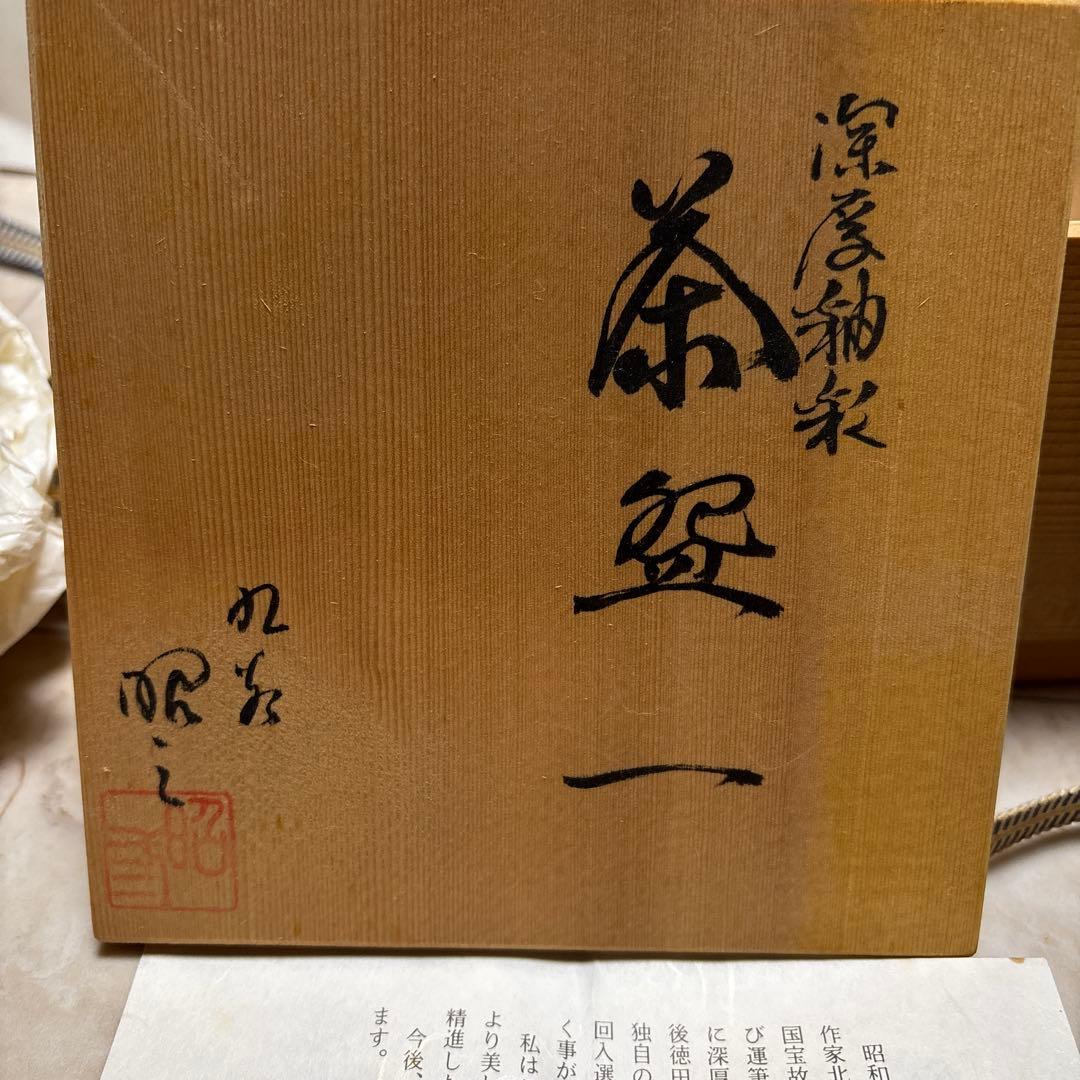 深厚釉彩
茶盌
一
九谷
昭之
昭和
作家北
国宝故
び運筆
に深厚
後徳田
独自の
回入選
く事が
私は
より美し
精進し
今後、
ます。